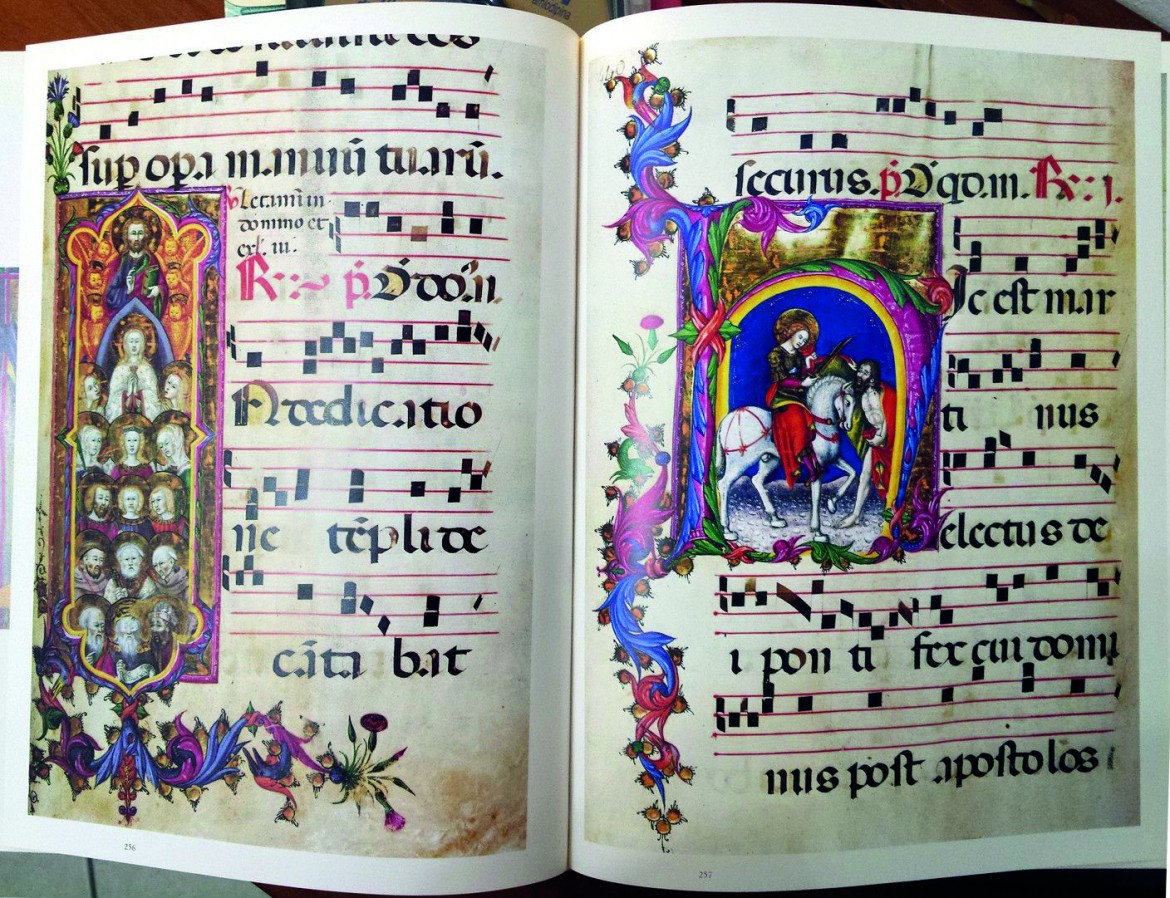 sup opa manuū tuarū.
Letamini in
domino et
exl. iii.
N dedicatio
ne tēpli de
cāta bat
256
securus.
Ic est mar
ti nus
electus de
i pon ti fex cui domi
nus post apostolos
257